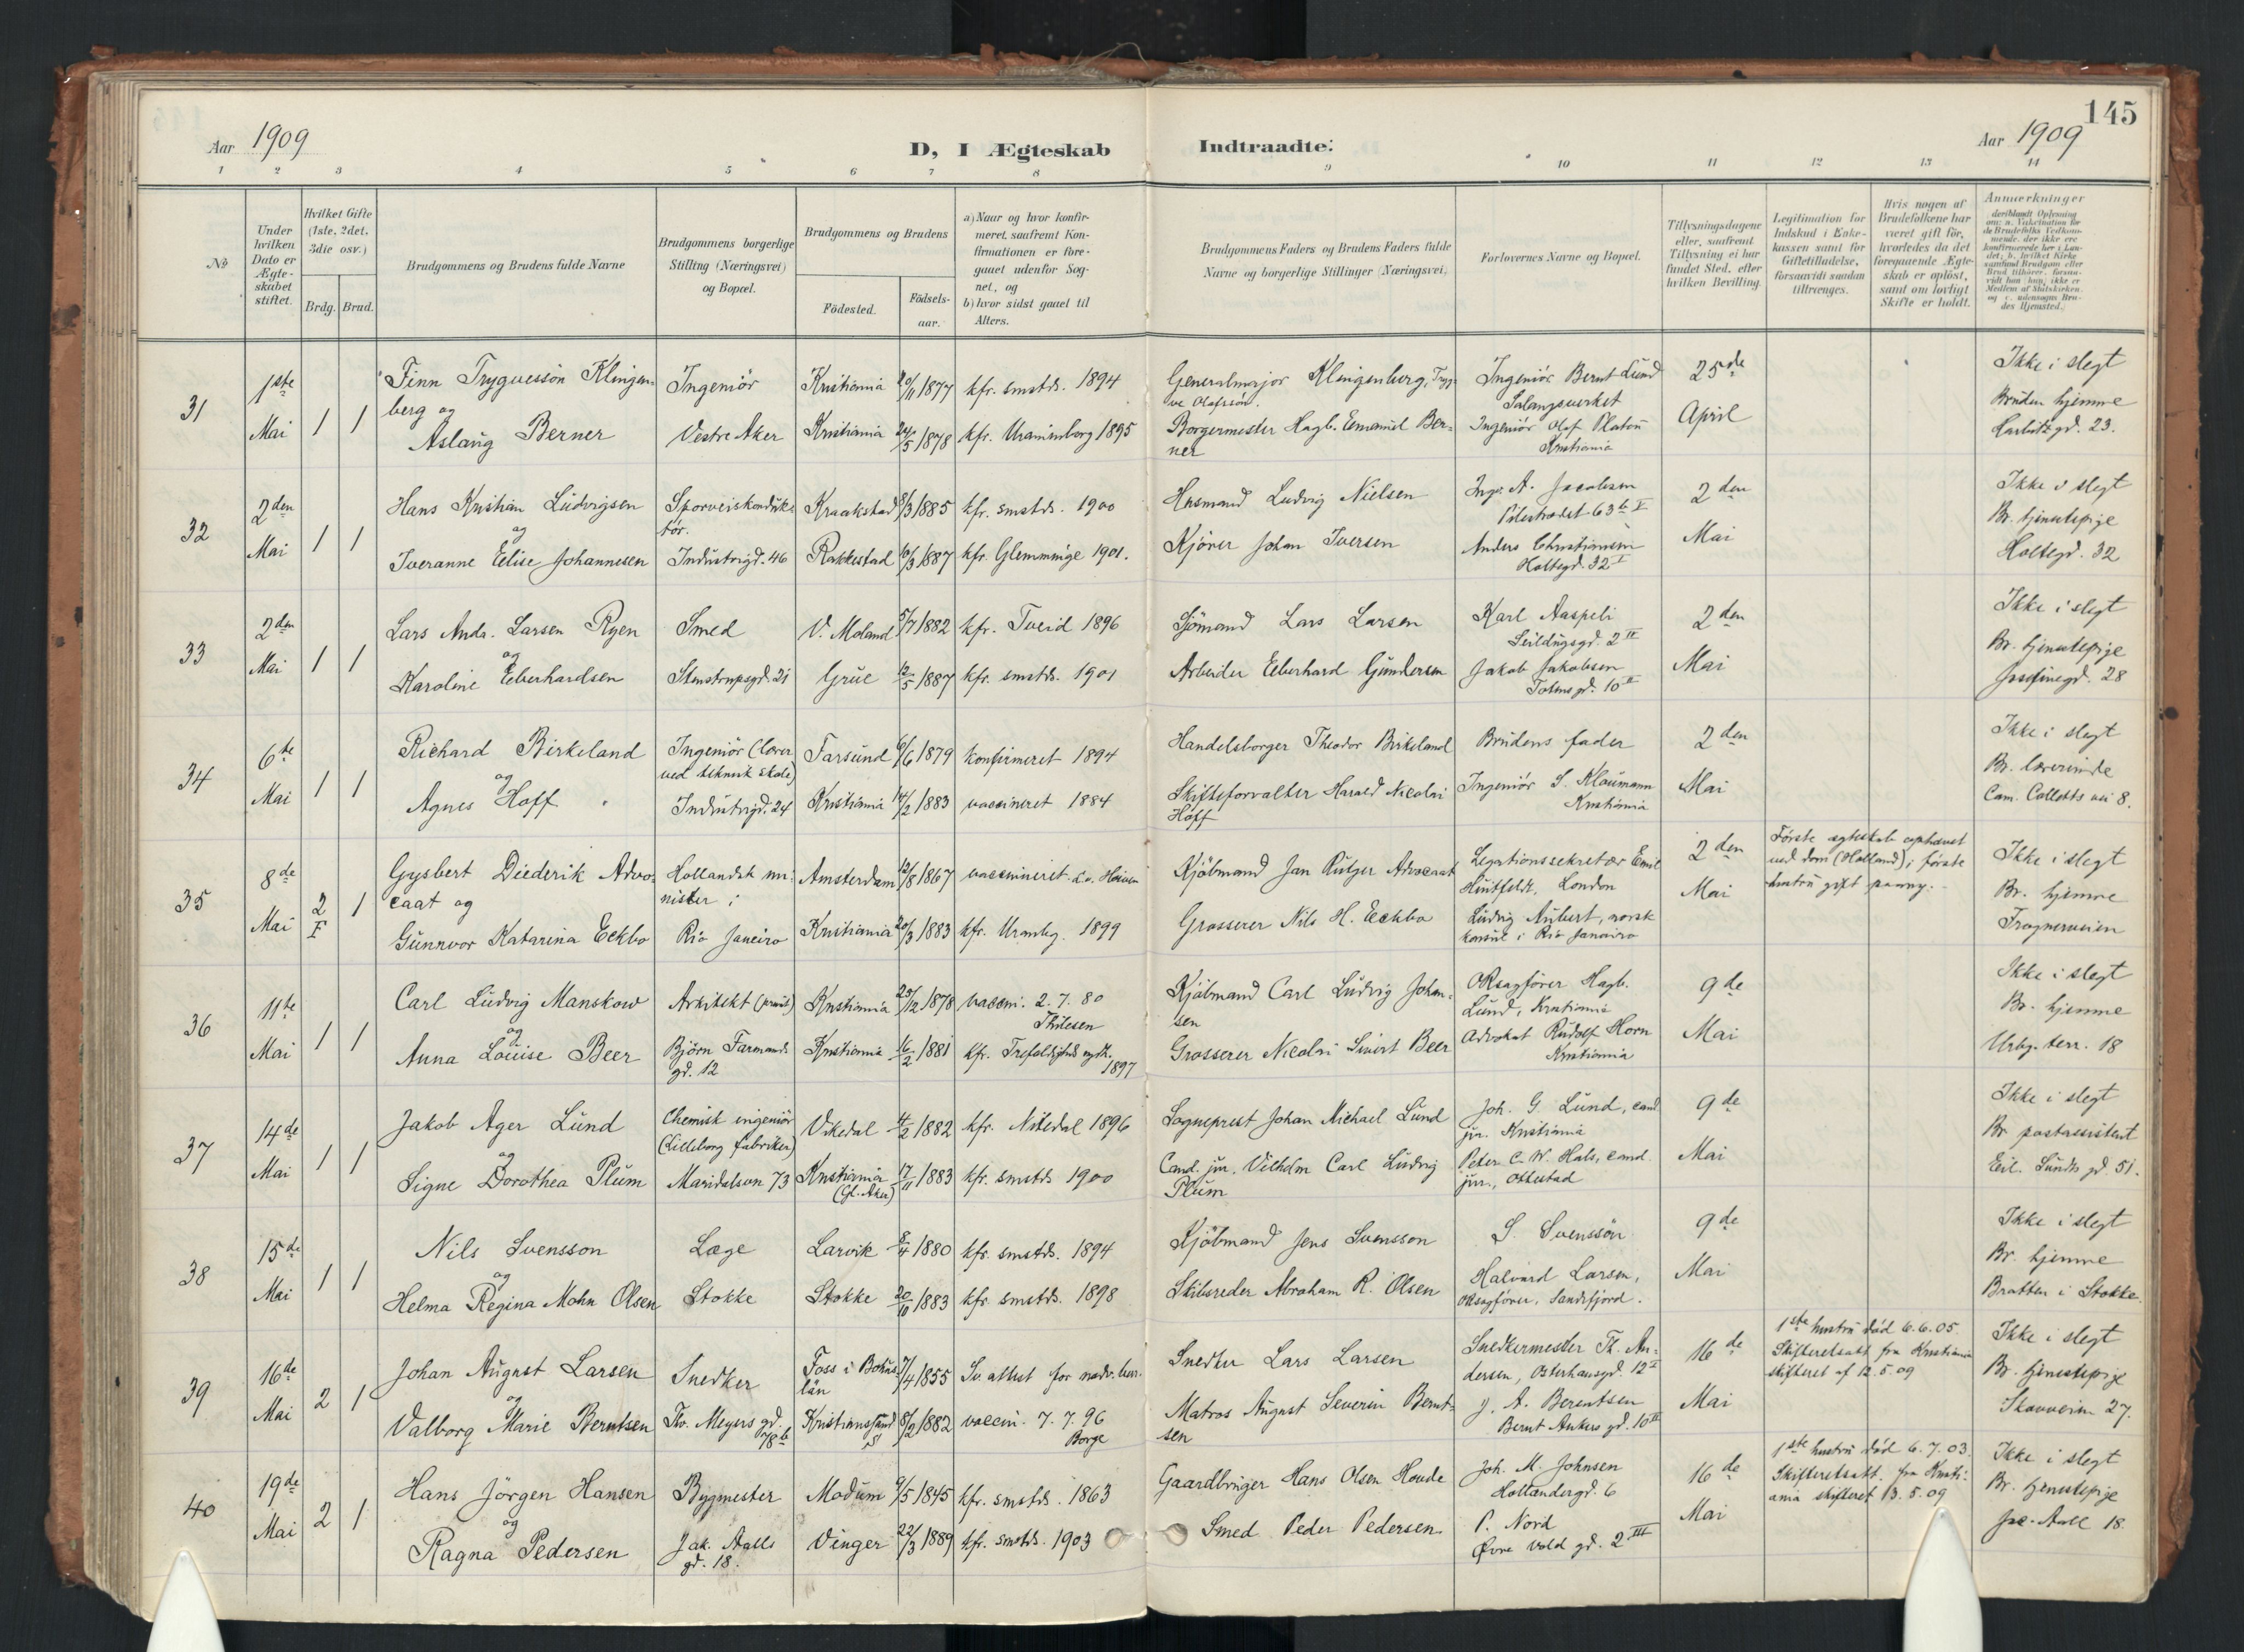 145
Aar 1909
D, I Ægteskab Indtraadte.
Aar 1909
1 2 3 4 5 6 7 8 9 10 11 12 13 14
No
Under hvilken Dato er Ægteskabet stiftet.
Hvilket Gifte (1ste, 2det, 3die osv.)
Brdg. Brud.
Brudgommens og Brudens fulde Navne
Brudgommens borgerlige Stilling (Næringsvei) og Bopæl.
Brudgommens og Brudens
Fødested.
Fødsels-aar.
a) Naar og hvor konfirmeret, saafremt Konfirmationen er foregaaet udenfor Sognet, og
b) hvor sidst gaaet til Alters.
Brudgommens Faders og Brudens Faders fulde Navne og borgerlige Stillinger (Næringsvei)
Forlovernes Navne og Bopæl.
Tillysningsdagene eller, saafremt Tillysning ei har fundet Sted, efter hvilken Bevilling.
Legitimation for Indskud i Enkekassen samt for Giftetilladelse, forsaavidt saadan tiltrænges.
Hvis nogen af Brudefolkene har været gift før, hvorledes da det foregaaende Ægteskab er opløst, samt om lovligt Skifte er holdt.
Anmærkninger
31
1ste Mai
1 1
Finn Tryguessön Klingenberg og
Aslaug Berner
Ingeniör
Vestre Aker
Kristiania 20/11 1877
Kristiania 24/5 1878
kfr. smstds. 1894
kfr. Uranienborg 1895
Generalmajor Klingenberg, Tryggve Olafssön.
Borgermester Hagb. Emanuel Berner
Ingeniör Bernt Lund
Salangsverket
Ingeniör Olaf Platou
Kristiania
25de April
Ikke i slegt
Bruden hjemme
23.
32
2den Mai
1 1
Hans Kristian Ludvigsen
og
Iveranne Elise Johannesen
Sporveiskonduktör.
Industrigd. 46
Kraakstad 8/3 1885
Rakkestad 10/3 1887
kfr. smstds. 1900
kfr. Glemminge 1901.
Husmand Ludvig Nielsen
Kjörer Johan Iversen
A. Jacobsen
Pilestrædet 63b V
Anders Christiansen
Holtegd. 32 I
2den Mai
Ikke i slegt
Br. tjenestepige
Holtegd. 32
33
2den Mai
1 1
Lars Andr. Larsen Ryen
og
Karoline Eeberhardsen
Smed
Stenstrupsgd. 21
V. Moland 5/7 1882
Grue 12/5 1887
kfr. Tveid 1896
kfr. smstds. 1901
Sjömand Lars Larsen
Arbeider Eeberhard Gundersen
Karl Aaspeli
Seildugsgd. 2 II
Jakob Jakobsen
Toftesgd. 10 II
2den Mai
Ikke i slegt
Br. tjenestepige
Josefinegd. 28
34
6te Mai
1 1
Richard Birkeland
og
Agnes Hoff
Ingeniör (lærer ved teknisk skole)
Industrigd. 24
Farsund 6/6 1879
Kristiania 14/2 1883
konfirmeret 1894
vaccineret 1884
Handelsborger Theodor Birkeland
Skifteforvalter Harald Nicolai Hoff
Brudens fader
Ingeniör S. Kloumann
Kristiania
2den Mai
Ikke i slegt
Br. lærerinde
Cam. Colletts vei 8.
35
8de Mai
2 F 1
Gysbert Diederik Advocaat og
Gunnvor Katarina Eckbo
Hollandsk minister i
Rio Janeiro
Amsterdam 12/8 1867
Kristiania 20/3 1883
vaccineret
kfr. Uranbg. 1899
Kjöbmand Jan Rutger Advocaat
Grosserer Nils H. Eckbo
Legationssekretær Emil
Huitfeldt, London
Ludvig Aubert, norsk
konsul i Rio Janeiro
2den Mai
Förste ægteskab ophævet
ved dom (Holland); förste
hustru gift paany.
Ikke i slegt
Br. hjemme
Frognerveien
36
11te Mai
1 1
Carl Ludvig Manskow
og
Anna Louise Beer
Arkitekt (privat)
Björn Farmands gd. 12
Kristiania 25/12 1878
Kristiania 16/2 1881
vaccin. 2.7.80
Thilesen
kfr. Trefoldighds mgth. 1897
Kjöbmand Carl Ludvig Johansen
Grosserer Nicolai Sivert Beer
ORsagförer Hagb.
Lund, Kristiania
Advokat Rudolf Horn
Kristiania
9de Mai
Ikke i slegt
Br. hjemme
Urbg. terr. 18
37
14de Mai
1 1
Jakob Ager Lund
og
Signe Dorothea Plum
Chemisk ingeniör
(Lilleborg fabriker)
Maridalsvn 73
Vikedal 4/2 1882
Kristiania (Gl. Aker) 17/11 1883
kfr. Nitedal 1896
kfr. smstds 1900
Sogneprest Johan Michael Lund
Cand. jur. Vilhelm Carl Ludvig
Plum
Joh. G. Lund, cand
jur. Kristiania
Peter C. W. Hals, cand.
jur., Ottestad
9de Mai
Ikke i slegt
Br postassistent
Eil. Sundts gd. 51.
38
15de Mai
1 1
Nils Svensson
og
Helma Regina Mohn Olsen
Læge
Stokke
Larvik 8/4 1880
Stokke 20/10 1883
kfr. smstds. 1894
kfr smstds. 1898
Kjöbmand Jens Svensson
Skibsreder Abraham R. Olsen
S. Svenssön
Halvard Larsen,
ORsagförer, Sandefjord.
9de Mai
Ikke i slegt
Br. hjemme
Bratten i Stokke.
39
16de Mai
2 1
Johan August Larsen
og
Valborg Marie Berntsen
Snedker
Tv. Meyers gd. 78b
Foss i Bohuslän 7/4 1855
Kristianssund S 8/2 1882
Sv. attest for nadv. ber.
vaccin. 7.7.96
Borge
Snedker Lars Larsen
Matros August Severin Berntsen
Snedkermester Th. Andersen, Osterhausgd. 12 I
J. A. Berentsen
Bernt Ankers gd. 10 II
16de Mai
1ste hustru död 6.6.05.
Skifteretsatt. fra Kristiania
skifteret af 12.5.09
Ikke i slegt
Br. tjenestepige
Skovveien 27.
40
19de Mai
2 1
Hans Jörgen Hansen
og
Ragna Pedersen
Bygmester
Jak. Aalls gd. 18.
Modum 9/5 1845
Vinger 22/3 1889
kfr. smstds. 1863
kfr. smstds. 1903
Gaardbruger Hans Olsen Hovde
Smed Peder Pedersen
Joh. M. Johnsen
Hollendergd. 6
P. Nord
Øvre Vold gd. 2 III
16de Mai
1ste hustru död 6.7.03.
Skifteretsatt. fra Kristiania skifteret 13.5.09
Ikke i slegt
Br. tjenestepige
Jac. Aall 18.